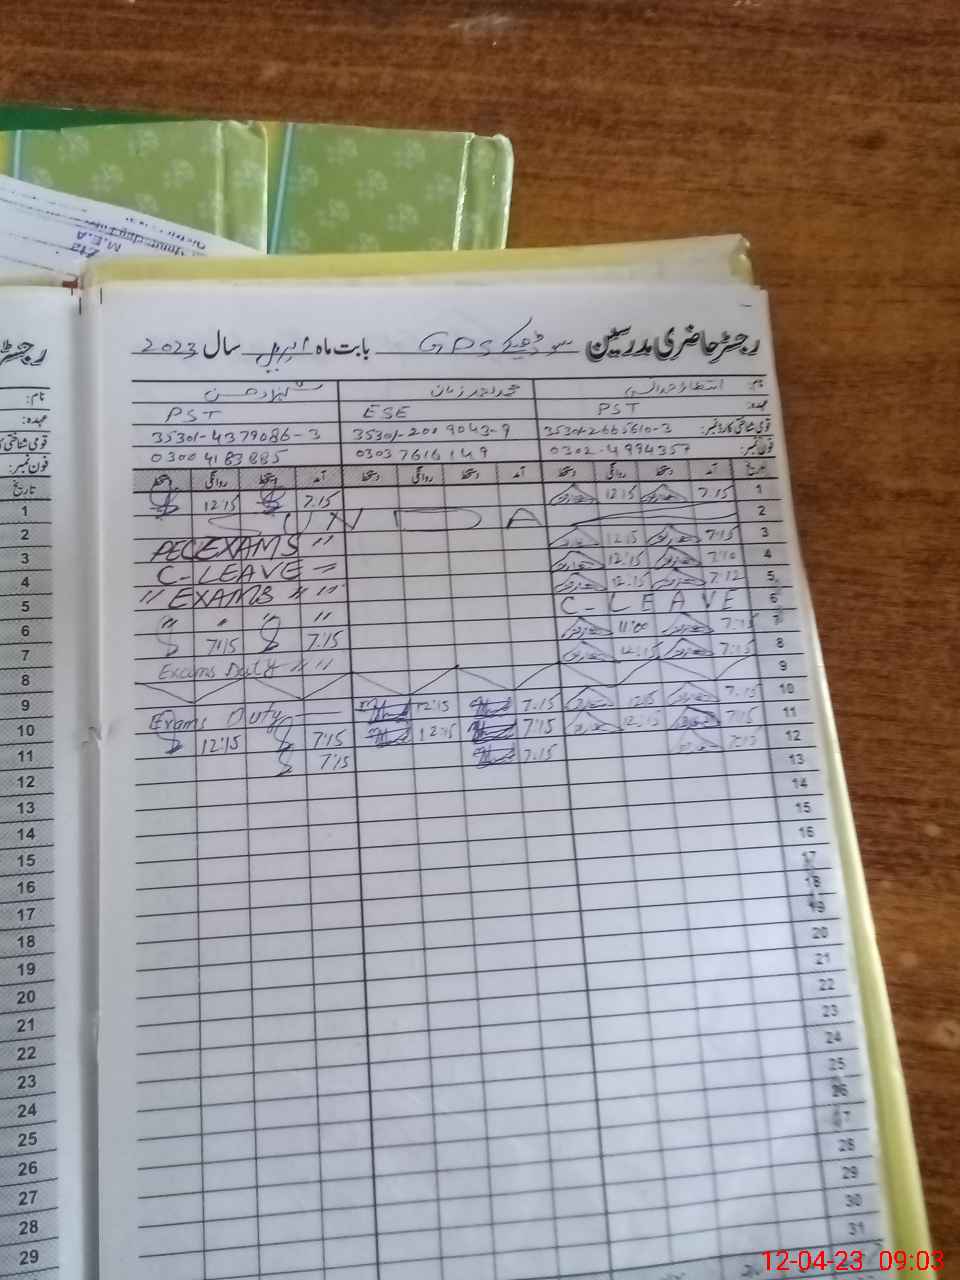 رجسٹر حاضری مدرسین GPS بابت ماہ اپریل سال 2023
نام:
عہدہ: PST ESE PST
قومی شناختی کارڈ نمبر: 35301-2665610-3 35301-2009043-9 35301-4379086-3
فون نمبر: 0302-4994357 03037616149 03004183885
تاریخ آمد دستخط روانگی دستخط آمد دستخط روانگی دستخط آمد دستخط روانگی دستخط
1 7.15 12:15 7.15 12:15
2 SUNDAY
3 7:15 12:15 PEC EXAMS "
4 7:10 12:15 C-LEAVE "
5 7:12 12:15 " EXAMS " "
6 C-LEAVE " " "
7 7:15 11:00 7:15 7:15
8 7:15 12:15 Exams Duty " "
9
10 7:15 12:15 7:15 12:15 Exams Duty
11 7:15 12:15 7:15 12:15 7:15 12:15
12 7:15 7:15 7:15
13
14
15
16
17
18
19
20
21
22
23
24
25
26
27
28
29
30
31
رجسٹر
نام:
عہدہ:
قومی شناختی کا
فون نمبر:
تاریخ
1
2
3
4
5
6
7
8
9
10
11
12
13
14
15
16
17
18
19
20
21
22
23
24
25
26
27
28
29
M.E.A
12-04-23 09:03